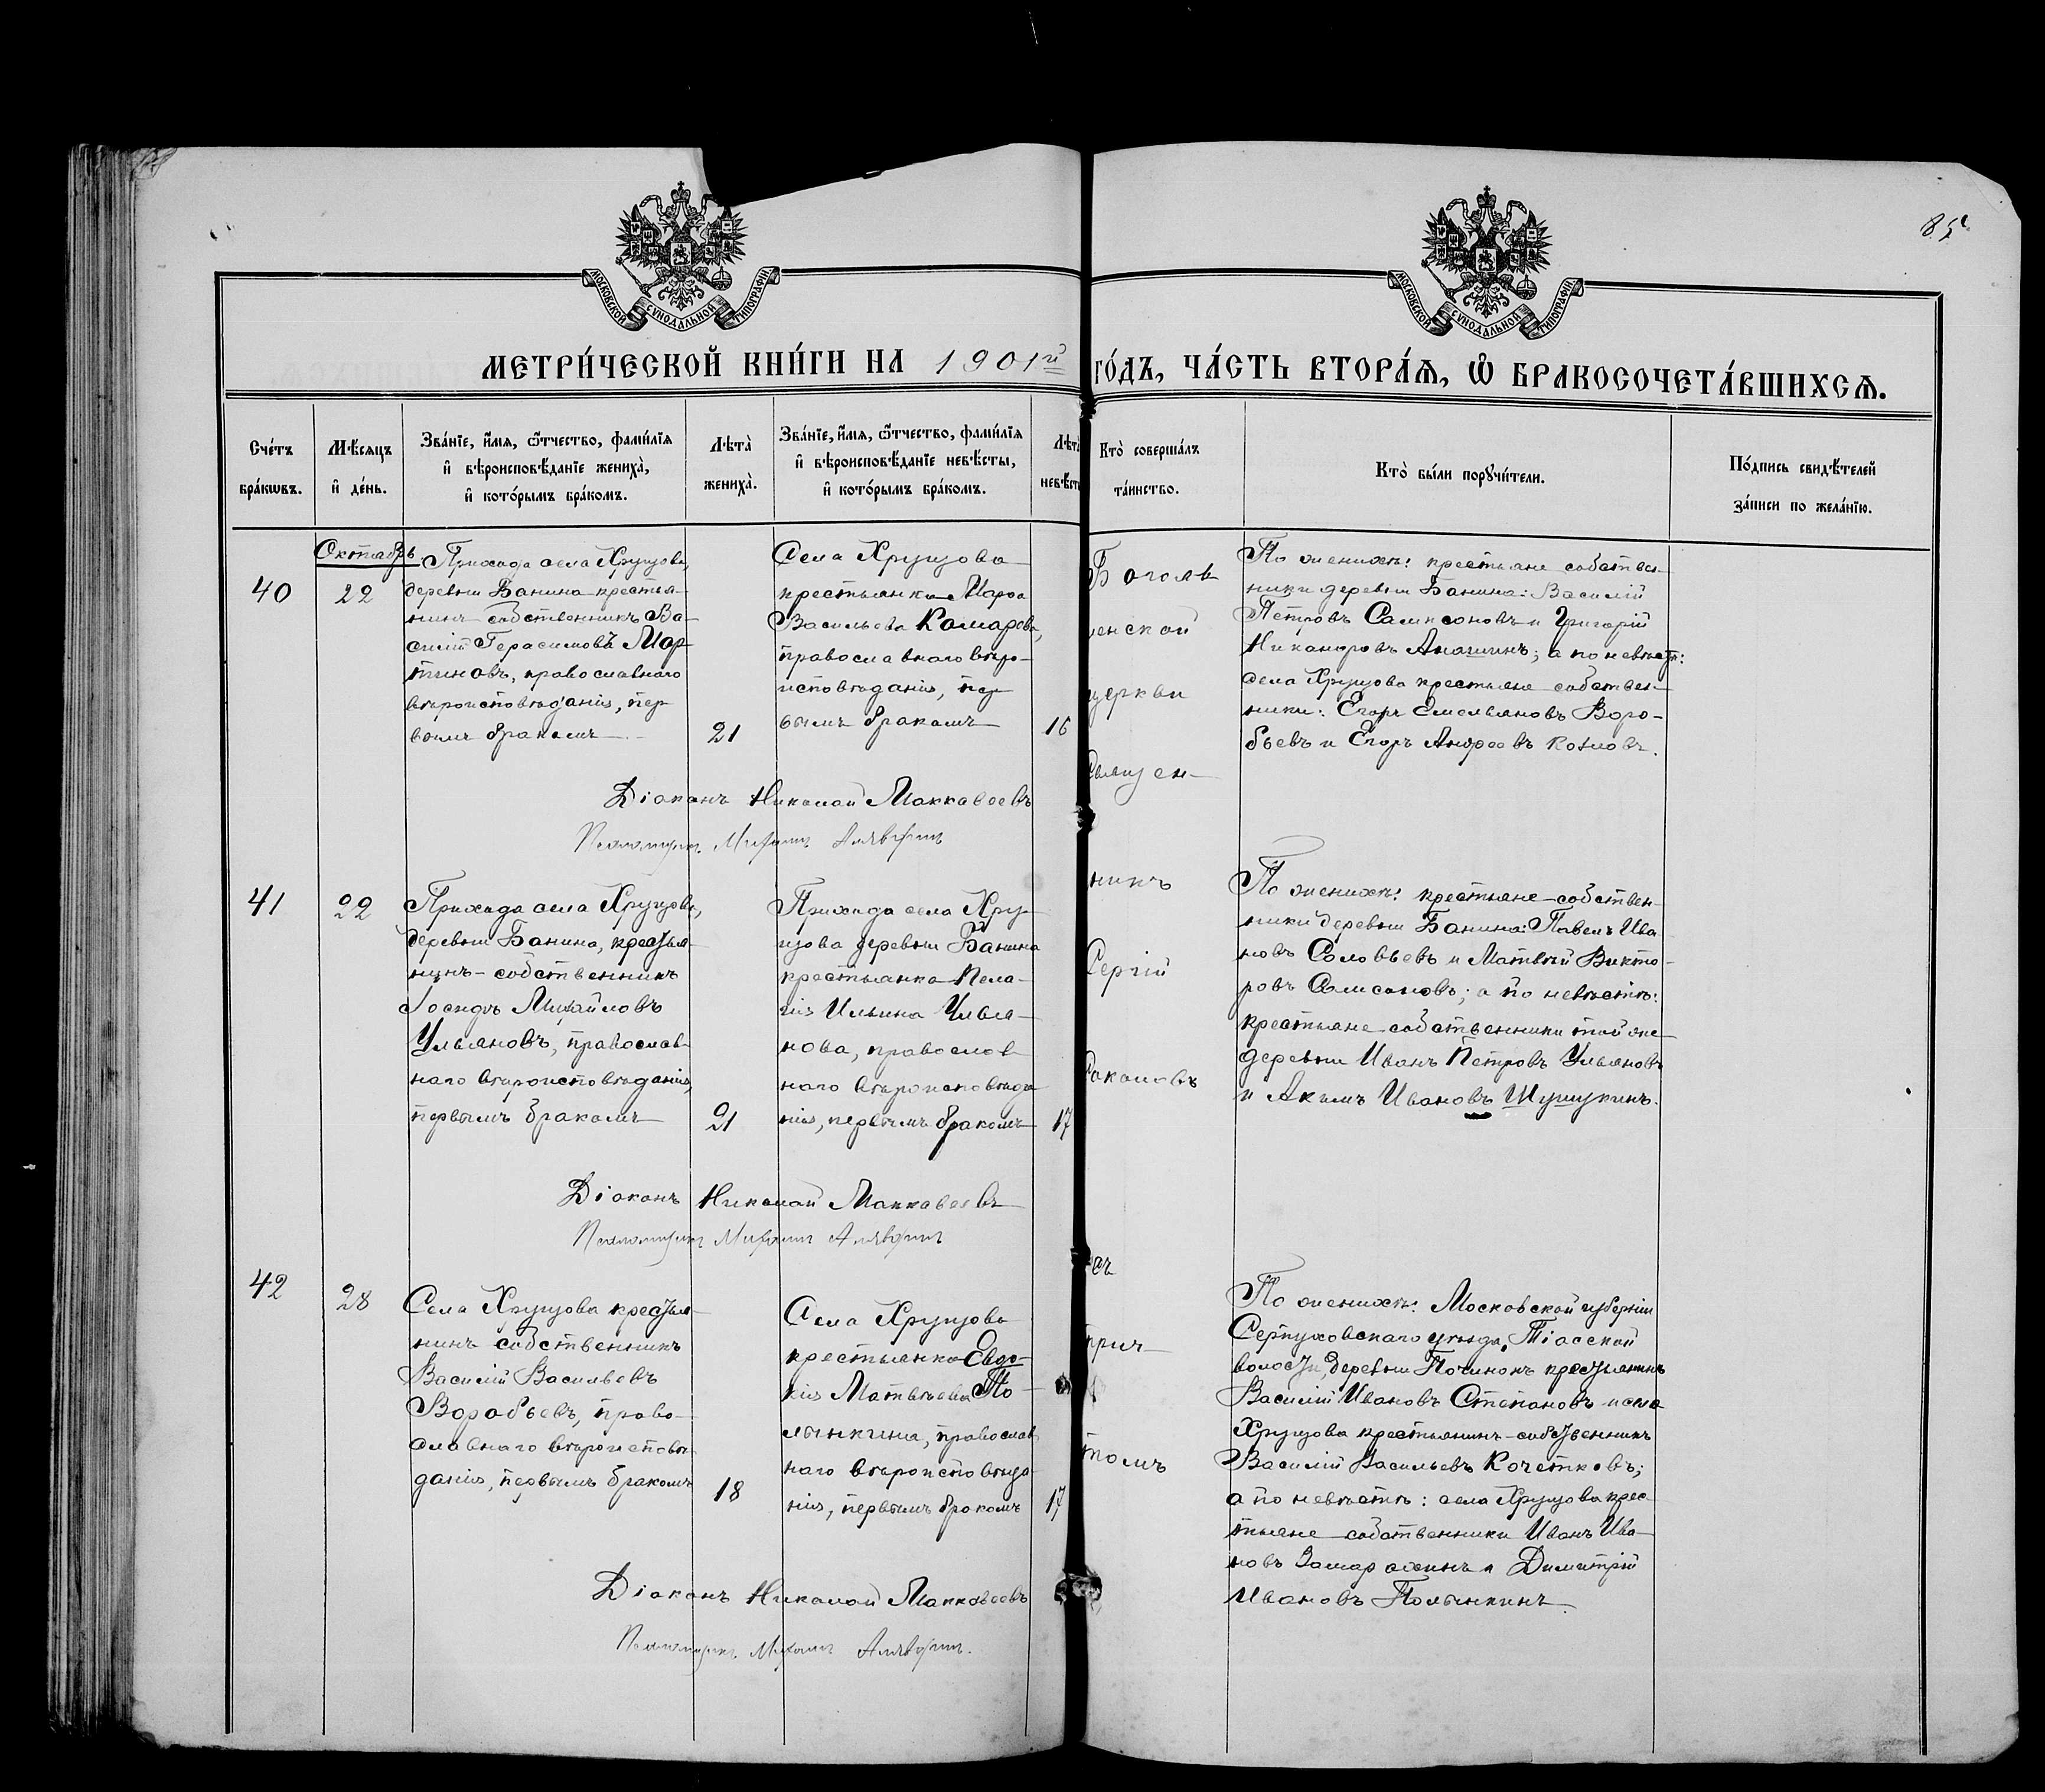 85
МОСКОВСКОЙ СУНОДАЛЬНОЙ ТИПОГРАФІИ
МОСКОВСКОЙ СУНОДАЛЬНОЙ ТИПОГРАФІИ
МЕТРИ́ЧЕСКОЙ КНИ́ГИ НА 1901й ГО́ДЪ, ЧА́СТЬ ВТОРА́Ѧ, Ѽ БРАКОСОЧЕТА́ВШИХСѦ.
Сче́тъ
бра́кѡвъ.
Мѣ́сяцъ
и҆ де́нь.
Зва́нїе, и҆́мѧ, ѻ҆́тчество, фами́лїѧ
и҆ вѣроисповѣ́данїе жениха̀,
и҆ кото́рымъ бра́комъ.
Лѣта̀
жениха̀.
Зва́нїе, и҆́мѧ, ѻ҆́тчество, фами́лїѧ
и҆ вѣроисповѣ́данїе невѣ́сты,
и҆ кото́рымъ бра́комъ.
Лѣта̀
невѣ́сты
Кто̀ соверша́лъ
та́инство.
Кто̀ бы́ли порꙋчи́тели.
По́дпись свидѣ́телей
за́писи по жела́нїю.
Октябрь
40
22
Прихода села Хрущова,
деревни Банина крестья-
нинъ-собственникъ Ва-
силій Герасимовъ Мар-
тиновъ, православнаго
вѣроисповѣданія, пер-
вымъ бракомъ
21
Села Хрущова
крестьянка Марѳа
Васильева Комарова,
православнаго вѣро-
исповѣданія, пер-
вымъ бракомъ
16
Боголѣ-
енской
церкви
Священ-
никъ
Сергій
Соколовъ
съ
прич-
томъ
По женихѣ: крестьяне собствен-
ники деревни Банина: Василій
Петровъ Самисоновъ и Григорій
Никаноровъ Анашинъ; а по невѣстѣ:
села Хрущова крестьяне-собствен-
ники: Егоръ Емельяновъ Воро-
бьевъ и Егоръ Андреевъ Козловъ.
Діаконъ Николай Маккавеевъ
Псаломщикъ Михаилъ
41
22
Прихода села Хрущова,
деревни Банина, крестья-
нинъ-собственникъ
Іосифъ Михайловъ
Ульяновъ, православ-
наго вѣроисповѣданія,
первымъ бракомъ
21
Прихода села Хру-
щова деревни Банина
крестьянка Пела-
гія Ильина Улья-
нова, православ-
наго вѣроисповѣда-
нія, первымъ бракомъ
17
По женихѣ: крестьяне-собствен-
ники деревни Банина: Павелъ Ива-
новъ Соловьевъ и Матвѣй Викто-
ровъ Самсоновъ; а по невѣстѣ:
крестьяне-собственники той же
деревни Иванъ Петровъ Ульяновъ
и Акимъ Ивановъ Шушукинъ.
Діаконъ Николай Маккавеевъ
Псаломщикъ Михаилъ
42
28
Села Хрущова крестья-
нинъ собственникъ
Василій Васильевъ
Воробьевъ, право-
славнаго вѣроисповѣ-
данія, первымъ бракомъ
18
Села Хрущова
крестьянка Евдо-
кія Матвѣева По-
лынкина, православ-
наго вѣроисповѣда-
нія, первымъ бракомъ
17
По женихѣ: Московской губерніи
Серпуховскаго уѣзда,
волости, деревни Починокъ крестьянинъ
Василій Ивановъ Степановъ и села
Хрущова крестьянинъ-собственникъ
Василій Васильевъ Кочетковъ;
а по невѣстѣ: села Хрущова крес-
тьяне-собственники Иванъ Ива-
новъ и Димитрій
Ивановъ Полынкинъ.
Діаконъ Николай Маккавеевъ
Псаломщикъ Михаилъ